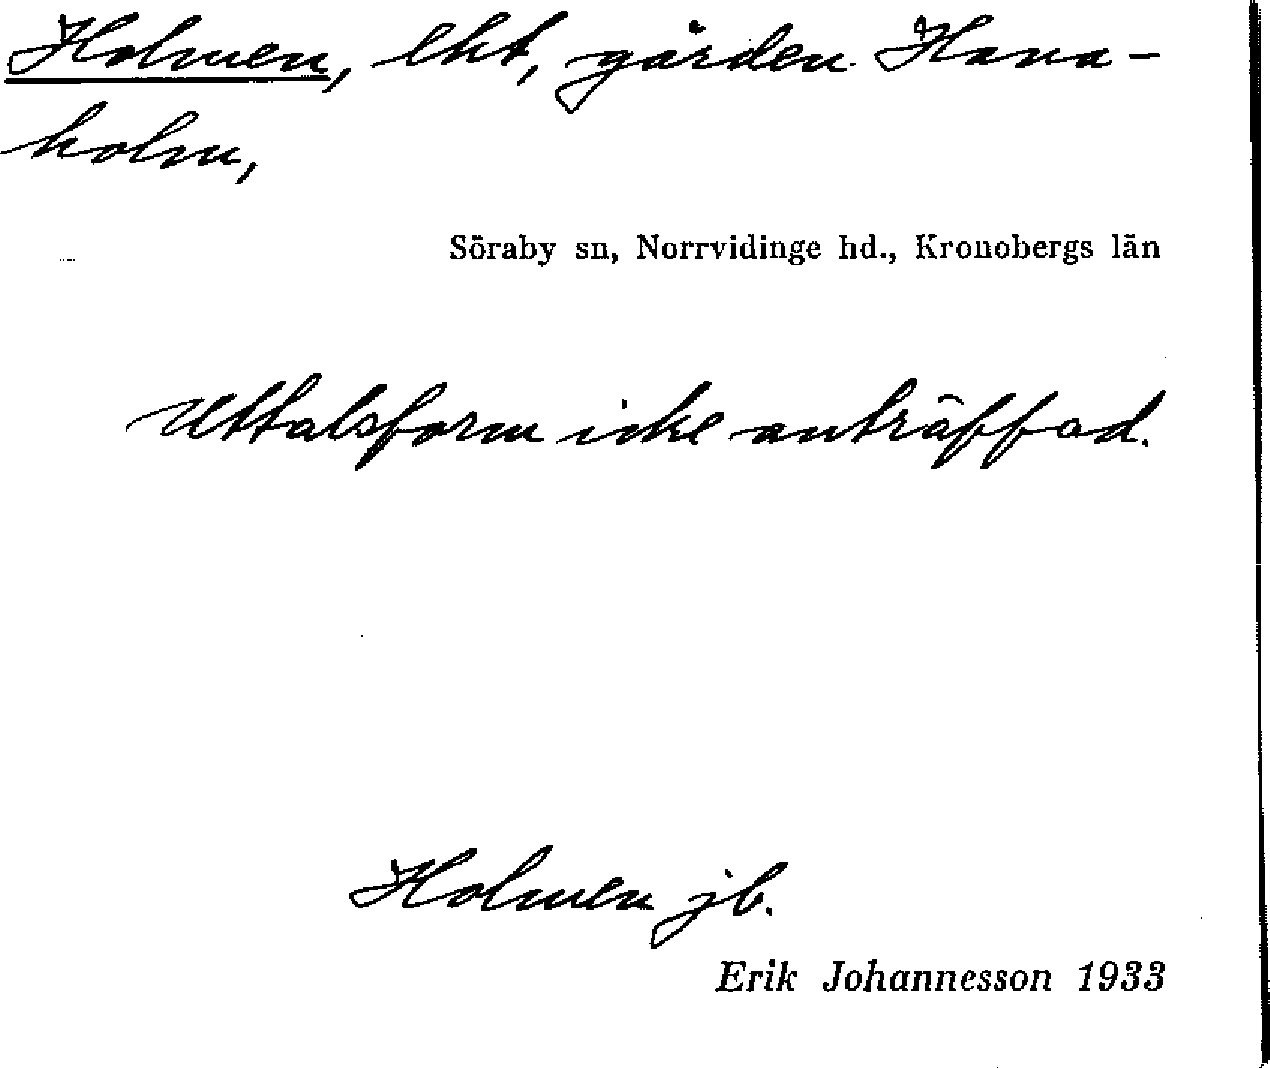 Holmen, lht, gården Hana-
holm,
Söraby sn, Norrvidinge hd., Kronobergs län
Uttalsform icke anträffad.
Holmen jb.
Erik Johannesson 1933